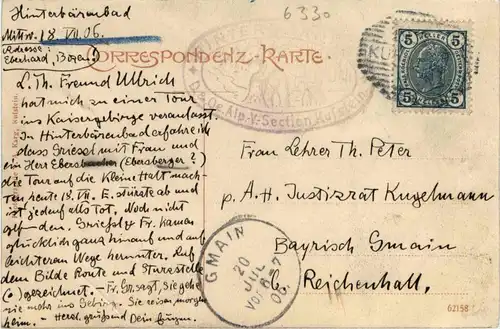 Hinterbärenbad
Mittw. 18. VII. 06.
(Adresse:
Eberhard, Bozen!)
6330
CORRESPONDENZ-KARTE.
HINTER
D. u. Oe. Alp.-V.-Section Kufstein
KU
5 5
5 5
L. Th. Freund Ullrich
hat mich zu einer Tour
ins Kaisergebirge veranlasst.
In Hinterbärenbad erfahre ich
dass Griessl mit Frau und
ein Herr Ebersbacher (Ebersberger?)
die Tour auf die Kleine Halt mach-
ten heute 18. VII. E. stürzte ab und
ist jedenfalls tot. Noch nicht
gef den. Griessl & Fr. kamen
glücklich ganz hinauf und auf
leichteren Wege herunter. Auf
dem Bilde Route und Sturzstelle
bezeichnet. – Fr. G. sagt, sie gehe
nie mehr ins Gebirg. Sie reisen morgen
heim. – Herzl. grüssend Dein Eugen.
Frau Lehrer Th. Peter
p. A. H. Justizrat Kugelmann
Bayrisch Gmain
b/ Reichenhall.
GMAIN
20
JUL
Vor. 6-7
06.
Karg, Kufstein
62158